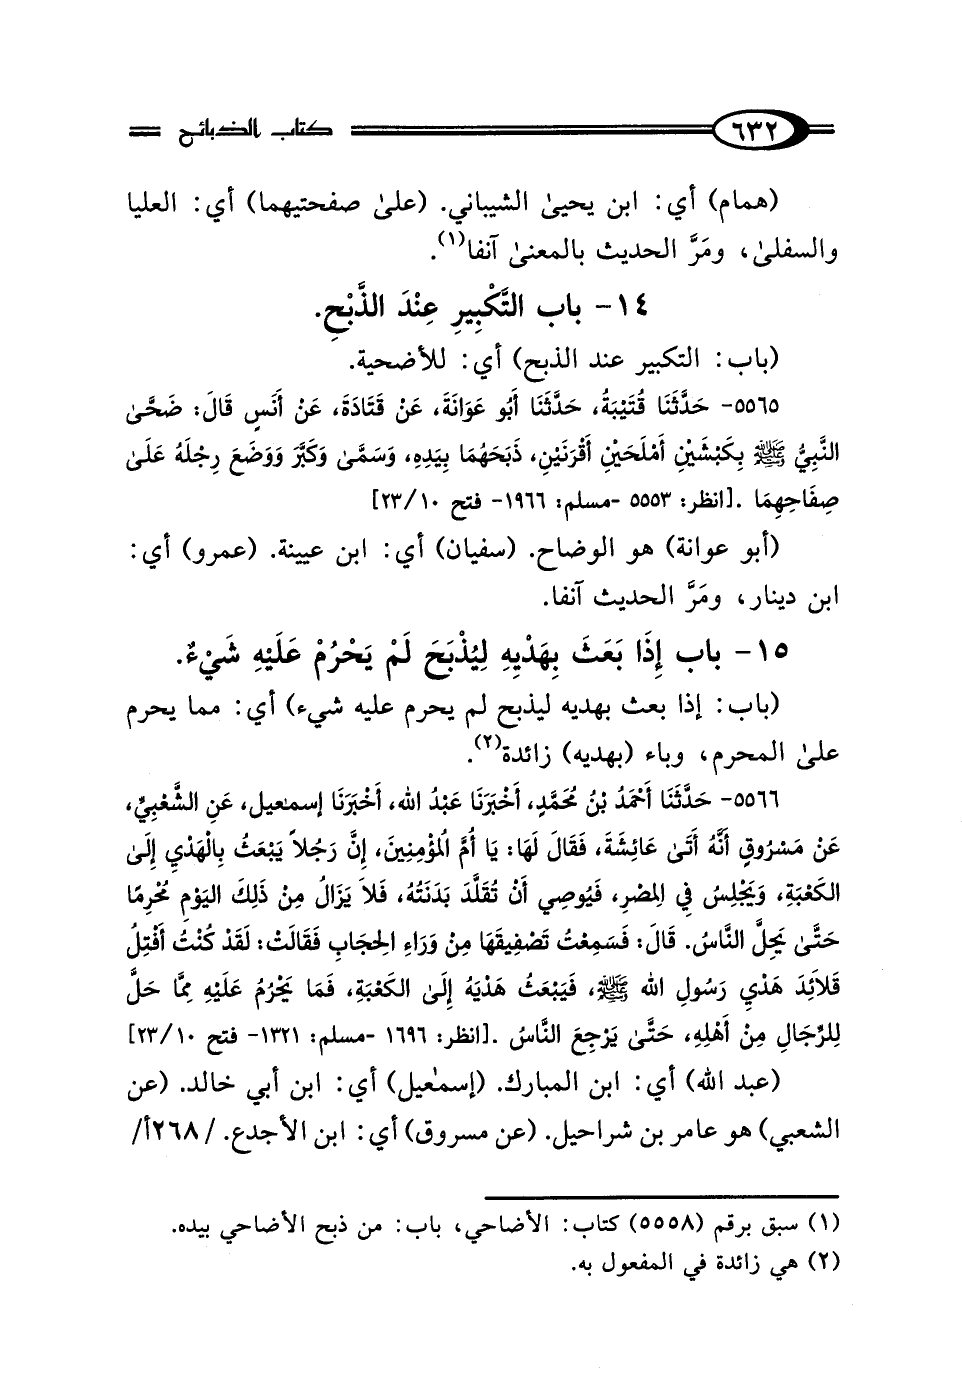 ٦٣٢ كتاب الذبائح
(همام) أي: ابن يحيىٰ الشيباني. (علىٰ صفحتيهما) أي: العليا
والسفلىٰ، ومَرَّ الحديث بالمعنىٰ آنفا(١).
١٤- باب التَّكْبِيرِ عِنْدَ الذَّبْحِ.
(باب: التكبير عند الذبح) أي: للأضحية.
٥٥٦٥- حَدَّثَنَا قُتَيْبَةُ، حَدَّثَنَا أَبُو عَوَانَةَ، عَنْ قَتَادَةَ، عَنْ أَنَسٍ قَالَ: ضَحَّىٰ
النَّبِيُّ ﷺ بِكَبْشَيْنِ أَمْلَحَيْنِ أَقْرَنَيْنِ، ذَبَحَهُمَا بِيَدِهِ، وَسَمَّىٰ وَكَبَّرَ وَوَضَعَ رِجْلَهُ عَلَىٰ
صِفَاحِهِمَا .[انظر: ٥٥٥٣ -مسلم: ١٩٦٦- فتح ١٠/ ٢٣]
(أبو عوانة) هو الوضاح. (سفيان) أي: ابن عيينة. (عمرو) أي:
ابن دينار، ومَرَّ الحديث آنفا.
١٥- باب إِذَا بَعَثَ بِهَدْيِهِ لِيُذْبَحَ لَمْ يَحْرُمْ عَلَيْهِ شَيْءٌ.
(باب: إذا بعث بهديه ليذبح لم يحرم عليه شيء) أي: مما يحرم
علىٰ المحرم، وباء (بهديه) زائدة(٢).
٥٥٦٦- حَدَّثَنَا أَحْمَدُ بْنُ مُحَمَّدٍ، أَخْبَرَنَا عَبْدُ الله، أَخْبَرَنَا إسمٰعيل، عَنِ الشَّعْبِيِّ،
عَنْ مَسْرُوقٍ أَنَّهُ أَتَىٰ عَائِشَةَ، فَقَالَ لَهَا: يَا أُمَّ الُمؤْمِنِينَ، إِنَّ رَجُلاً يَبْعَثُ بِالْهَدْيِ إِلَىٰ
الكَعْبَةِ، وَيَجْلِسُ فِي المِصْرِ، فَيُوصِي أَنْ تُقَلَّدَ بَدَنَتُهُ، فَلاَ يَزَالُ مِنْ ذَلِكَ اليَوْمِ مُحْرِمًا
حَتَّىٰ يَحِلَّ النَّاسُ. قَالَ: فَسَمِعْتُ تَصْفِيقَهَا مِنْ وَرَاءِ الحِجَابِ فَقَالَتْ: لَقَدْ كُنْتُ أَفْتِلُ
قَلاَئِدَ هَدْيِ رَسُولِ الله ﷺ، فَيَبْعَثُ هَدْيَهُ إِلَىٰ الكَعْبَةِ، فَمَا يَحْرُمُ عَلَيْهِ مِمَّا حَلَّ
لِلرِّجَالِ مِنْ أَهْلِهِ، حَتَّىٰ يَرْجِعَ النَّاسُ .[انظر: ١٦٩٦ -مسلم: ١٣٢١- فتح ١٠/ ٢٣]
(عبد الله) أي: ابن المبارك. (إسمٰعيل) أي: ابن أبي خالد. (عن
الشعبي) هو عامر بن شراحيل. (عن مسروق) أي: ابن الأجدع. / ٢٦٨أ/
(١) سبق برقم (٥٥٥٨) كتاب: الأضاحي، باب: من ذبح الأضاحي بيده.
(٢) هي زائدة في المفعول به.